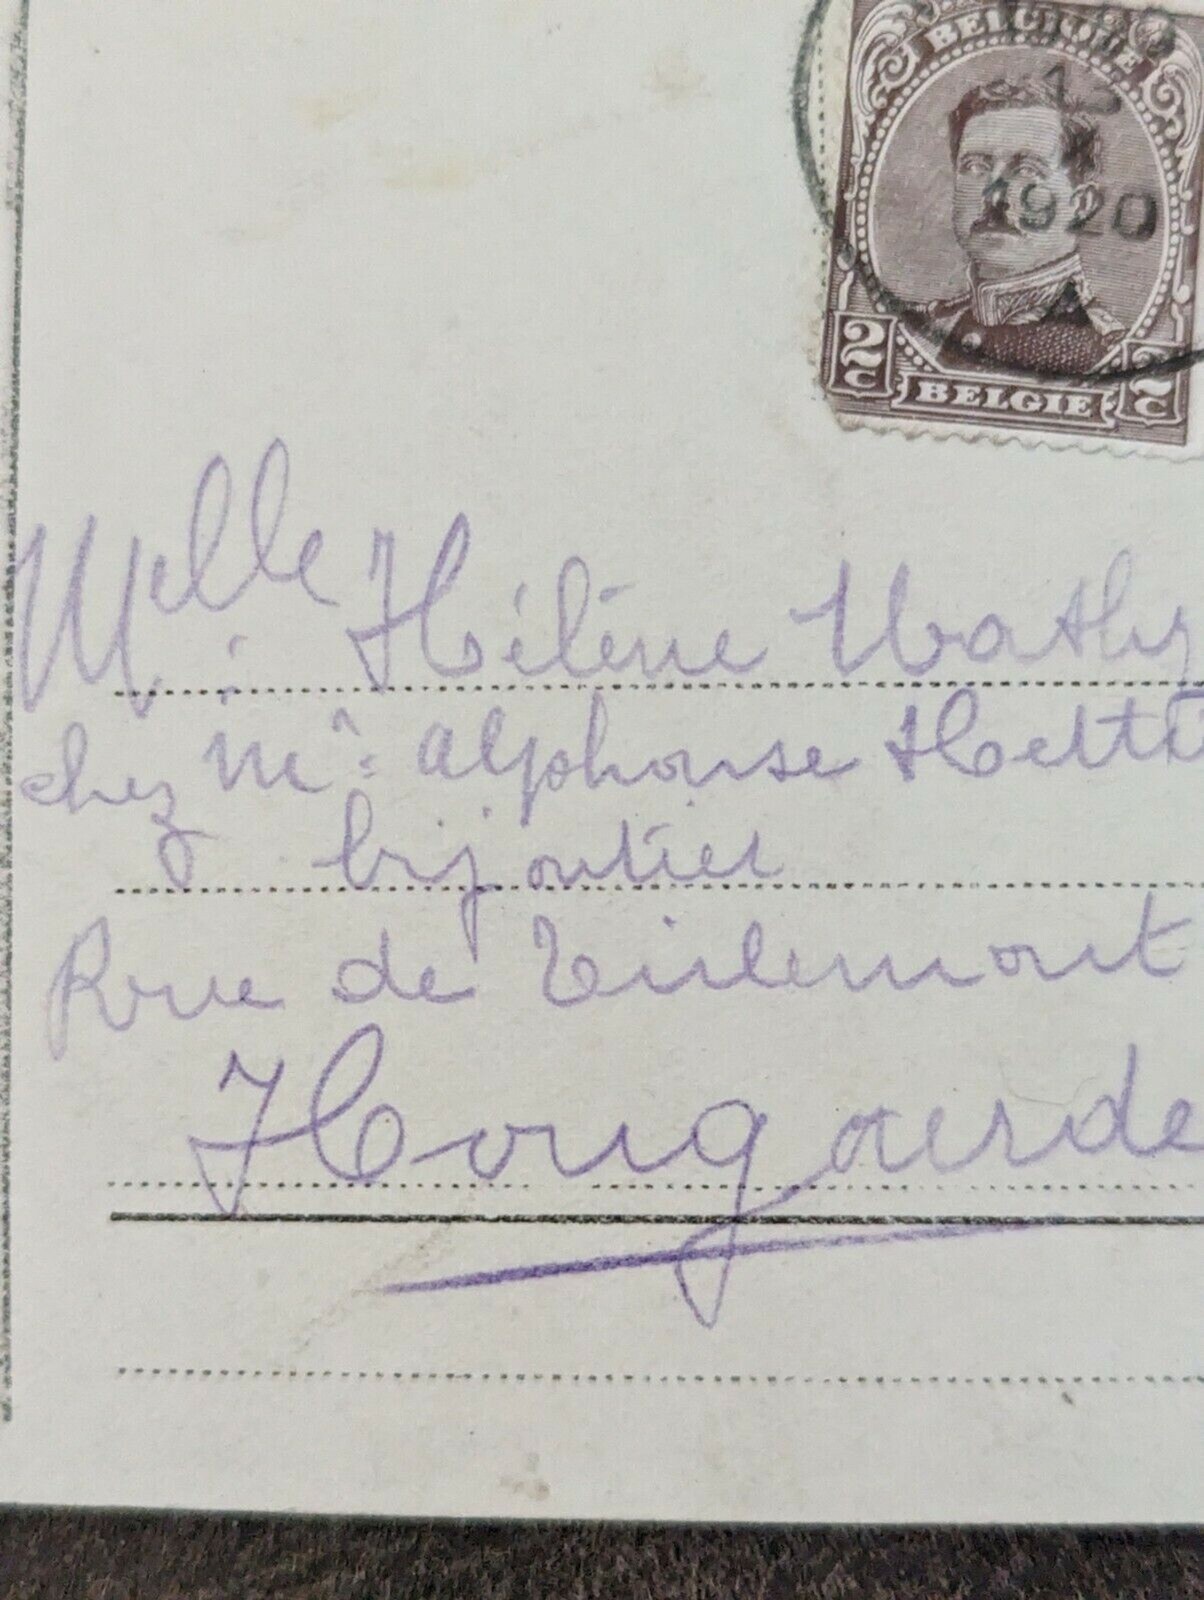 BELGIQUE
15
1920
2 C BELGIE 2 C
Melle Hélène Wathy
chez Mr Alphonse
bijoutier
Rue de Tirlemont
Hougaerde